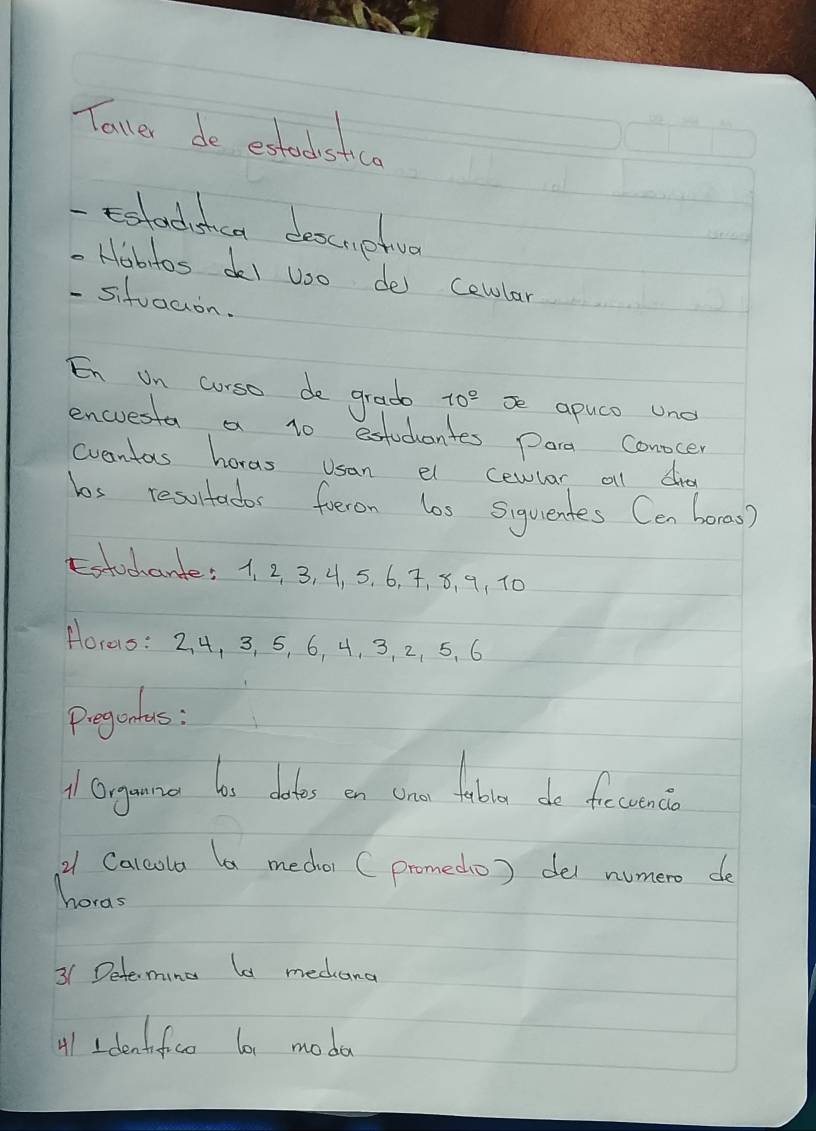 Taller de estadistica
- Estadistica descriptiva
- Hábitos del uso del celular
- situación.
En un curso de grado 10º se apuco una
encuesta a 10 estudiantes Para Conocer
cuantas horas usan el celular al dia
los resultados fueron los siguientes (en horas)
Estudiante: 1, 2, 3, 4, 5, 6, 7, 8, 9, 10
Horas: 2, 4, 3, 5, 6, 4, 3, 2, 5, 6
Preguntas:
1/ Organiza los datos en una tabla de frecuencia
2/ Calcula la media (promedio) del numero de
horas
3/ Determina la mediana
4/ Identifica la moda